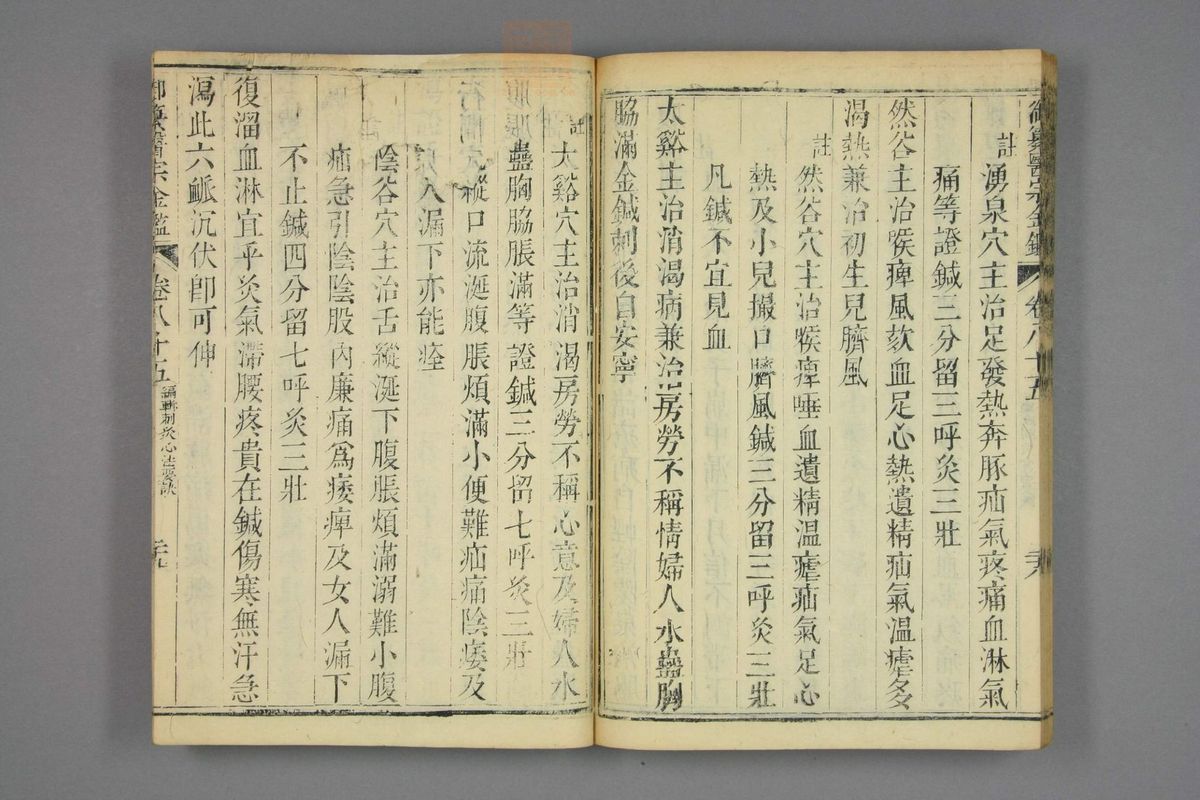 御纂醫宗金鑑 卷八十五
註 湧泉穴主治足發熱奔豚疝氣疼痛血淋氣
痛等證鍼三分留三呼灸三壯
然谷主治喉痺風欬血足心熱遺精疝氣溫瘧多
渴熱兼治初生兒臍風
註 然谷穴主治喉痺唾血遺精溫瘧疝氣足心
熱及小兒撮口臍風鍼三分留三呼灸三壯
凡鍼不宜見血
太谿主治消渴病兼治房勞不稱情婦人水蠱胸
脇滿金鍼刺後自安寧
註 太谿穴主治消渴房勞不稱心意及婦人水
蠱胸脇脹滿等證鍼三分留七呼灸三壯
縱口流涎腹脹煩滿小便難疝痛陰痿及
人漏下亦能痊
陰谷穴主治舌縱涎下腹脹煩滿溺難小腹
痛急引陰陰股內廉痛為痿痺及女人漏下
不止鍼四分留七呼灸三壯
復溜血淋宜乎灸氣滯腰疼貴在鍼傷寒無汗急
瀉此六脈沉伏卽可伸
御纂醫宗金鑑 卷八十五 編輯刺灸心法要訣